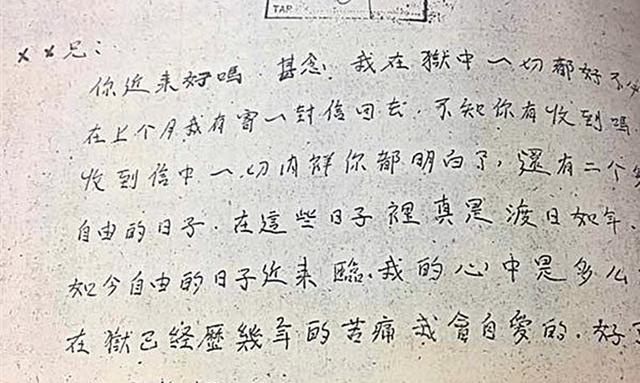 TAP
××兄：
你近来好嗎．甚念．我在獄中一切都好不
在上个月我有寄一封信回去．不知你有收到嗎
收到信中一切内詳你都明白了，還有二个
自由的日子．在這些日子裡真是渡日如年．
如今自由的日子近来臨．我的心中是多么
在獄已经歷幾年的苦痛我會自愛的．好了